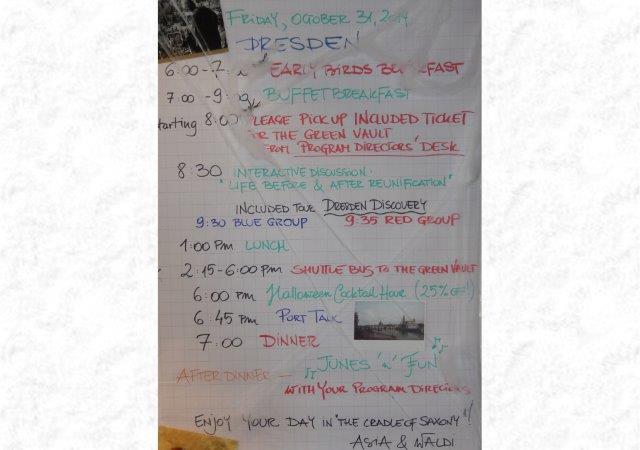 FRIDAY, OCTOBER 31, 2014
DRESDEN
6:00 - 7: EARLY BIRDS
7:00 - 9:00 BUFFET BREAKFAST
tarting 8:00 LEASE PICK UP INCLUDED TICKET
OR THE GREEN VAULT
FROM PROGRAM DIRECTORS' DESK
8:30 INTERACTIVE DISCUSSION:
"LIFE BEFORE & AFTER REUNIFICATION"
INCLUDED TOUR DRESDEN DISCOVERY
9:30 BLUE GROUP 9:35 RED GROUP
1:00 PM LUNCH
2:15-6:00 PM SHUTTLE BUS TO THE GREEN VAULT
6:00 PM Halloween Cocktail Hour (25% OFF!)
6:45 PM PORT TALK
7:00 DINNER
AFTER DINNER - JUNES 'n' FUN
WITH YOUR PROGRAM DIRECTORS
ENJOY YOUR DAY IN "THE CRADLE OF SAXONY"!
ASIA & WALDI